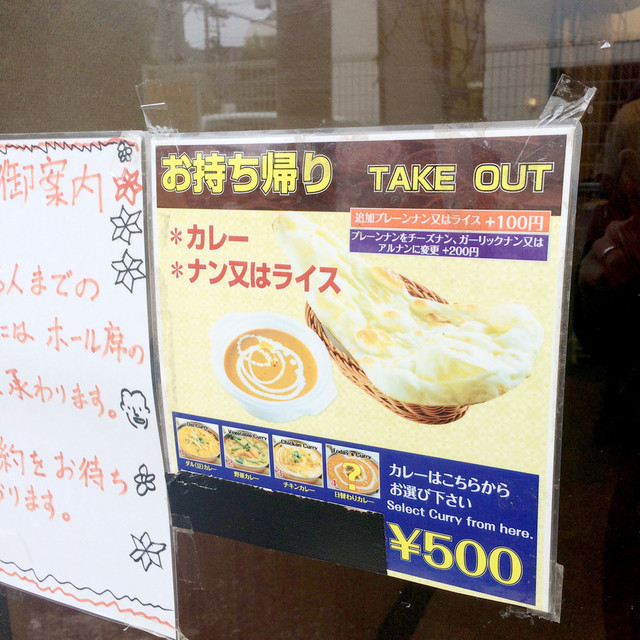 御案内
人までの
には ホール席の
承わります。
約をお待ち
ります。
お持ち帰り TAKE OUT
追加プレーンナン又はライス +100円
プレーンナンをチーズナン、ガーリックナン又は
アルナンに変更 +200円
*カレー
*ナン又はライス
Vegetable Curry
Chicken Curry
Today's Curry
?
ダル(豆)カレー
野菜カレー
チキンカレー
日替わりカレー
カレーはこちらから
お選び下さい
Select Curry from here.
¥500